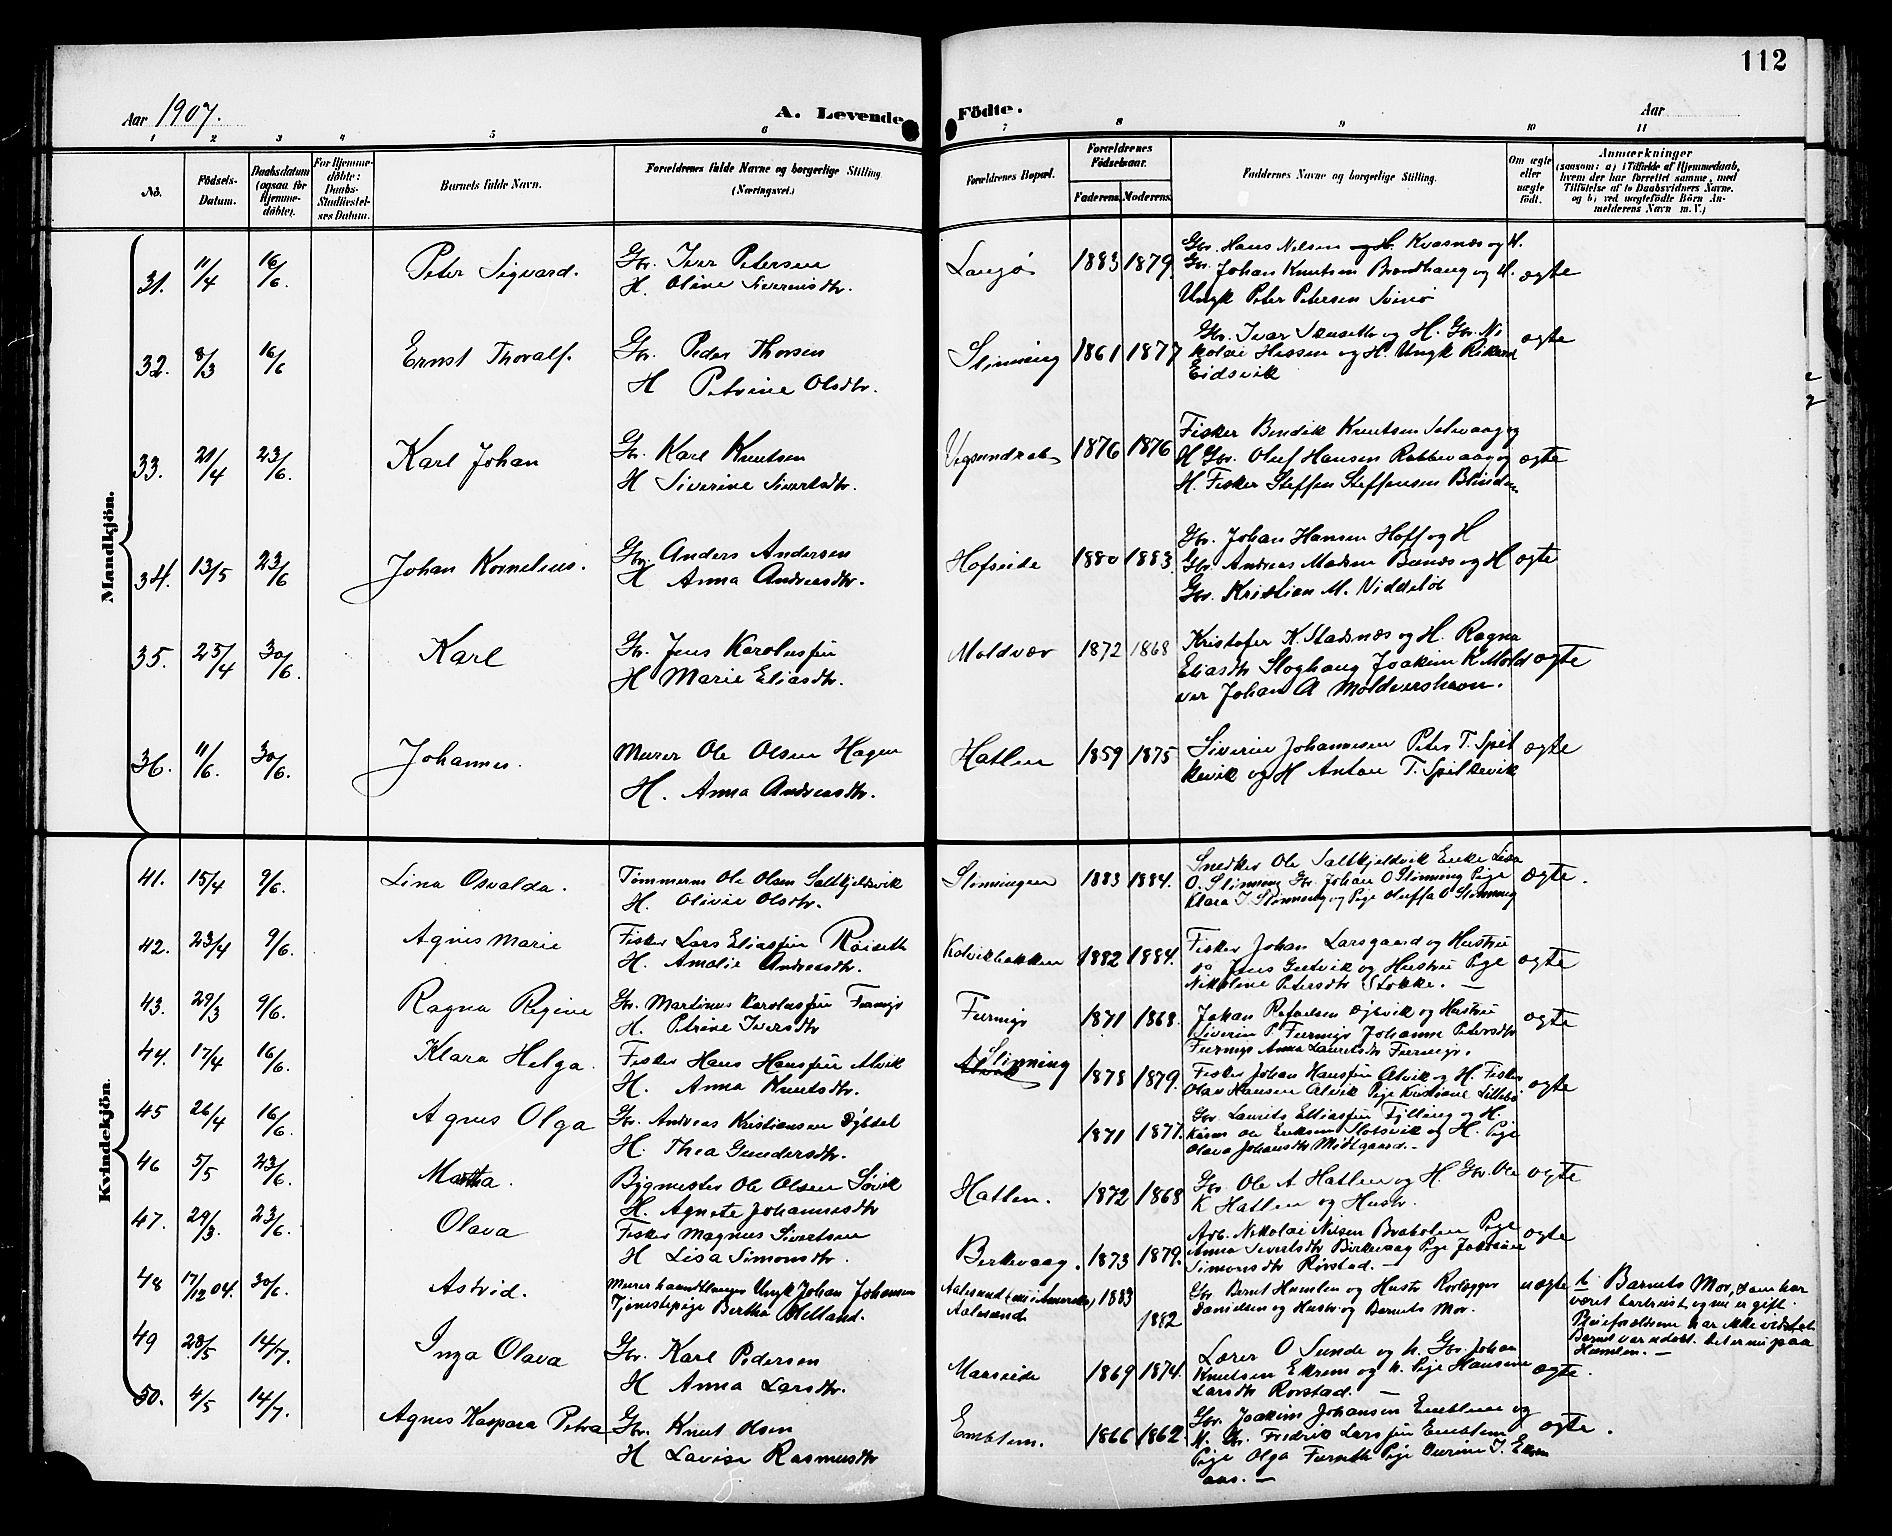 112
Aar 1907.
A. Levende Födte.
Aar
1 2 3 4 5 6 7 8 9 10 11
No.
Födsels-
Datum.
Daabsdatum
(ogsaa for
Hjemme-
döbte).
For Hjemme-
döbte:
Daabs-
Stadfæstel-
ses Datum.
Barnets fulde Navn.
Forældrenes fulde Navne og borgerlige Stilling
(Næringsvei.)
Forældrenes Bopæl.
Forældrenes
Födselsaar.
Faderens. Moderens.
Faddernes Navne og borgerlige Stilling.
Om ægte
eller
uægte
født.
Anmærkninger
(saasom: a) i Tilfælde af Hjemmedaab,
hvem der har forrettet samme, med
Tilföielse af to Daabsvidners Navne.
og b) ved uægtefödte Börn An-
melderens Navn m. V.)
Mandkjön.
31. 11/4 16/6. Peter Sigvard.
Gbr. Iver Petersen
H. Oline Sivertsdtr.
1883 1879.
Gbr. Hans Nilsen og H. Kvasnæs og H.
Gbr. Johan Knutsen Brandhaug og H.
Ungk Peter Petersen Svinø
ægte
32. 8/3 16/6 Ernst Thoralf.
Gbr. Peder Thorsen
H Petrine Olsdtr.
Slinning 1861 1877
Gbr. Ivar og H. Gbr. Ni
kolai Hessen og H. Ungk Rikard
Eidsvik
ægte
33. 21/4 23/6. Karl Johan
Gbr. Karl Knutsen
H Siverine Sivertsdtr.
1876 1876
Fisker Bendik Knutsen og
H Gbr. Oluf Hansen Rabbevaag og
H. Fisker Steffen Steffensen Blindem
ægte
34. 13/5 23/6 Johan Kornelius.
Gbr. Anders Andersen
H Anna Andreasdtr.
Hofseide 1880 1883.
Gbr. Johan Hansen Hoff og H
Gbr. Andreas Madsen og H
Gbr. Kristian M.
ægte
35. 25/4 30/6. Karl
Gbr. Jens Karolussen
H Marie Eliasdtr.
Moldvær 1872 1868
Kristofer K. Stadsnæs og H. Ragna
Eliasdtr Sloghaug Joakim K Mold
vær Johan A Moldværshavn.
ægte
36. 11/6. 30/6. Johannes.
Murer Ole Olsen Hagen
H. Anna Andreasdtr.
Hatlen 1859 1875
Siverin Johannesen Peter T. Spil
kevik og H Anton T. Spilkevik
ægte
Kvindekjön.
41. 15/4 9/6. Lina Osvalda.
Tømmerm Ole Olsen Saltkjeldsvik
H. Olivie Olsdtr.
Slinningen 1883 1884.
Snedker Ole Saltkjeldvik Enke Lisa
O. Slinning Gbr. Johan O Slinning Pige
Klara I. Slinning og Pige Oluffa O Slinning
ægte.
42. 23/4 9/6. Agnes Marie
Fisker Lars Eliassen Røiseth
H. Amalie Andreasdtr.
Kolvikbakken 1882 1884.
Fisker Johan Larsgaard og Hustru
do Jens Gutvik og Hustru Pige
Nikoline Petersdtr Stokke. —
ægte
43. 29/3 9/6. Ragna Regine
Gbr. Martinus Karolussen Furmyr
H. Petrine Iversdtr
Furmyr 1871 1868.
Johan og Hustru
Siverin P Furmyr Johanne Petersdtr
Furmyr Anna Lauritsdtr Furmyr.
ægte
44. 17/4 16/6. Klara Helga.
Fisker Hans Hanssen Alvik
H. Anna Knutsdtr.
Slinning
Alvik 1878 1879.
Fisker Johan Hanssen Alvik og H. Fisker
Olav Hansen Alvik Pige Kristiane Lillebø
ægte
45 26/4 16/6. Agnes Olga
Gbr. Andreas Kristiansen
H. Thea Gundersdtr.
1871 1877.
Gbr. Laurits Elliassen Fylling og H.
Ole Eriksen Slotsvik og H. Pige
Olava Johansdtr Midtgaard. —
46 5/5 23/6. Martha.
Bygmester Ole Olsen Løvik
H. Agnete Johannesdtr
Hatlen. 1872 1868
Gbr. Ole A Hatlen og H Gbr. Ole
K Hatlen og Hustr.
ægte
47. 29/3. 23/6 Olava
Fisker Magnus Sivertsen
H Lisa Simonsdtr.
Birkevaag. 1873 1879.
Arb. Nikolai Nilsen Pige
Anna Sivertsdtr Birkevaag Pige
Simonsdtr Rørstad. —
ægte
48 17/12 04. 30/6. Astrid.
Murerhaandlanger Ungk Johan Johansen
Tjenestepige Bertha Helland.
Aalesund (nu i Amerika) 1883
Aalesund 1882
Gbr. Bernt Humlen og Hustr Rørlægger
Danielsen og Hustr og Barnets Mor.
uægte
Barnets Mor, som har
været bortreist og nu er gift.
Pleieforældrene har ikke vidst at
Barnet var udøbt. Det er nu paa
Humlen. —
49 28/5 14/7. Inga Olava
Gbr. Karl Pedersen
H Anna Larsdtr.
Maaseide 1869 1874.
Lærer O Sunde og h. Gbr Johan
Knutsen Ekrem og h. Pige Hansine
Larsdtr Rørstad. —
ægte.
50. 4/5 14/7. Agnes Kaspara Petra
Gbr. Knut Olsen
H Lovise Rasmusdtr
Emblem. 1866 1862.
Gbr. Joakim Johansen Emblem og
H. Gbr. Fredrik Larssen Emblem
Pige Olga Pige I.
aas. —
ægte.